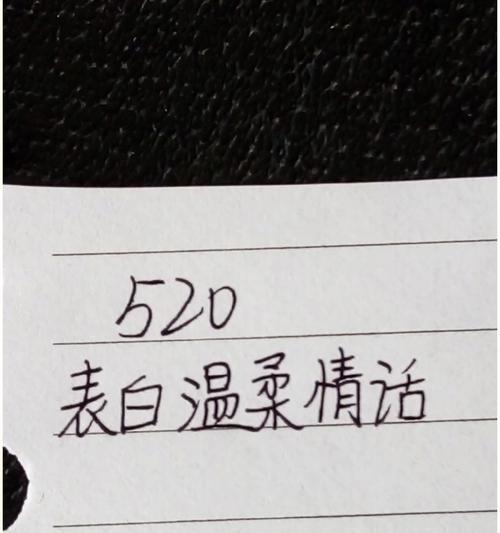 520
表白温柔情话